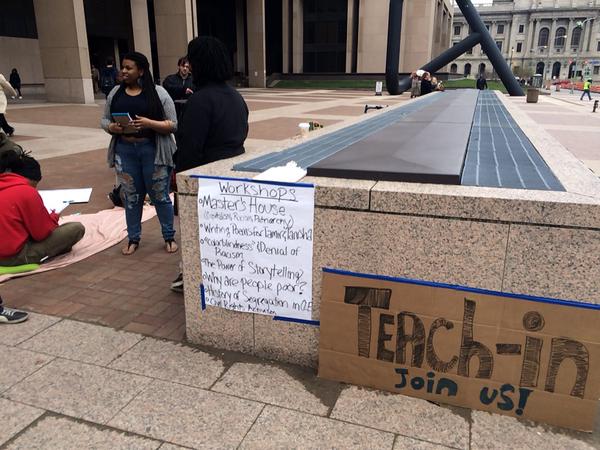 Workshops
Master's House
(Capitalism, Racism, Patriarchy)
Writing Poems for Tamir, Tanisha
"Colorblindness" (Denial of
Racism
The Power of Storytelling
Why are people poor?
History of Segregation in CLE
Civil Rights
Teach-in
Join us!